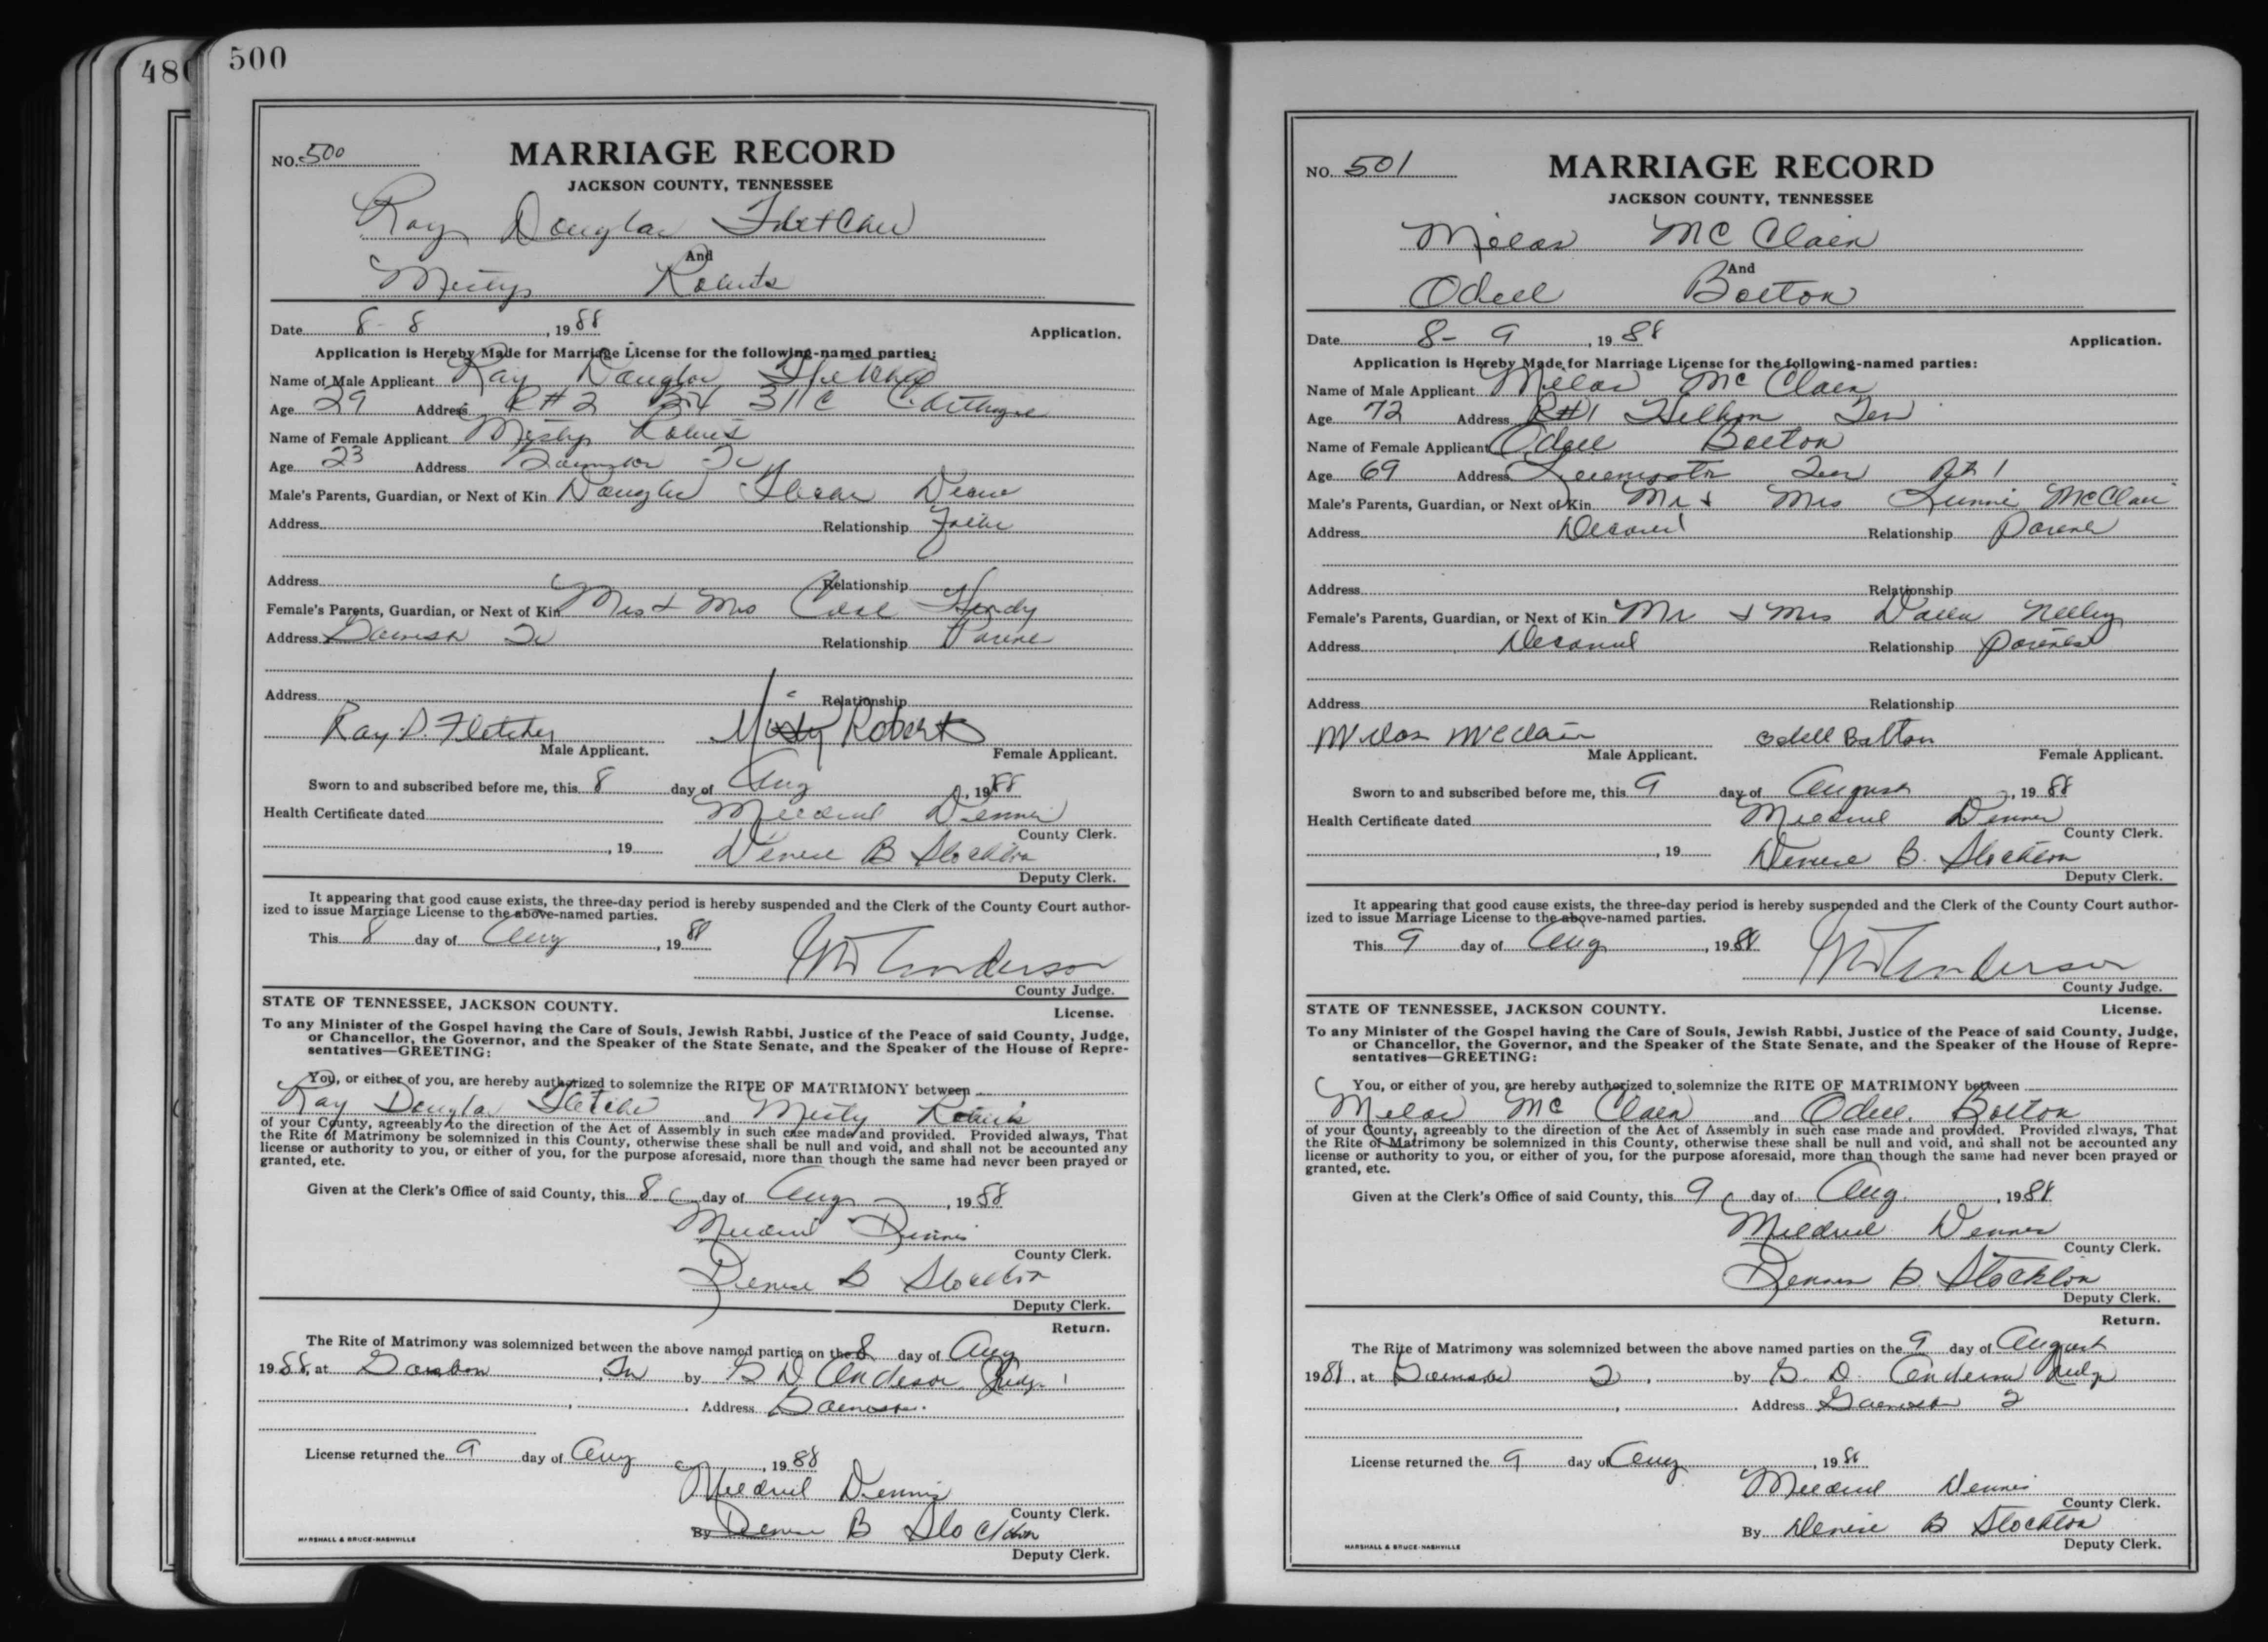 480
500
NO. 500
MARRIAGE RECORD
JACKSON COUNTY, TENNESSEE
Ray Douglas Fletcher
And
Misty Roberts
Date 8-8, 1988
Application.
Application is Hereby Made for Marriage License for the following-named parties:
Name of Male Applicant Ray Douglas Fletcher
Age 29 Address R#2 311C Carthage
Name of Female Applicant Misty Roberts
Age 23 Address Gainesboro
Male's Parents, Guardian, or Next of Kin Douglas
Address Relationship Father
Address Relationship
Female's Parents, Guardian, or Next of Kin Mr & Mrs
Address Relationship Parent
Address Relationship
Ray D. Fletcher Misty Roberts
Male Applicant. Female Applicant.
Sworn to and subscribed before me, this 8 day of Aug, 1988
Health Certificate dated Mildred Dennis
County Clerk.
, 19 Denise B Stockton
Deputy Clerk.
It appearing that good cause exists, the three-day period is hereby suspended and the Clerk of the County Court author-
ized to issue Marriage License to the above-named parties.
This 8 day of Aug, 1988
Anderson
County Judge.
STATE OF TENNESSEE, JACKSON COUNTY.
License.
To any Minister of the Gospel having the Care of Souls, Jewish Rabbi, Justice of the Peace of said County, Judge,
or Chancellor, the Governor, and the Speaker of the State Senate, and the Speaker of the House of Repre-
sentatives—GREETING:
You, or either of you, are hereby authorized to solemnize the RITE OF MATRIMONY between
Ray Douglas Fletcher and Misty Roberts
of your County, agreeably to the direction of the Act of Assembly in such case made and provided. Provided always, That
the Rite of Matrimony be solemnized in this County, otherwise these shall be null and void, and shall not be accounted any
license or authority to you, or either of you, for the purpose aforesaid, more than though the same had never been prayed or
granted, etc.
Given at the Clerk's Office of said County, this 8 day of Aug, 1988
Mildred Dennis
County Clerk.
Denise B Stockton
Deputy Clerk.
Return.
The Rite of Matrimony was solemnized between the above named parties on the 8 day of Aug
1988, at Gainesboro, Tn by G D Anderson Judge
Address Gainesboro
License returned the 9 day of Aug, 1988
Mildred Dennis
County Clerk.
By Denise B Stockton
Deputy Clerk.
MARSHALL & BRUCE-NASHVILLE
NO. 501
MARRIAGE RECORD
JACKSON COUNTY, TENNESSEE
Milas McClain
And
Odell Bolton
Date 8-9, 1988
Application.
Application is Hereby Made for Marriage License for the following-named parties:
Name of Male Applicant Milas McClain
Age 72 Address R#1
Name of Female Applicant Odell Bolton
Age 69 Address Rt 1
Male's Parents, Guardian, or Next of Kin Mr & Mrs McClain
Address Deceased Relationship Parent
Address Relationship
Female's Parents, Guardian, or Next of Kin Mr & Mrs
Address Deceased Relationship Parents
Address Relationship
Milas McClain Odell Bolton
Male Applicant. Female Applicant.
Sworn to and subscribed before me, this 9 day of August, 1988
Health Certificate dated Mildred Dennis
County Clerk.
, 19 Denise B. Stockton
Deputy Clerk.
It appearing that good cause exists, the three-day period is hereby suspended and the Clerk of the County Court author-
ized to issue Marriage License to the above-named parties.
This 9 day of Aug, 1988
Anderson
County Judge.
STATE OF TENNESSEE, JACKSON COUNTY.
License.
To any Minister of the Gospel having the Care of Souls, Jewish Rabbi, Justice of the Peace of said County, Judge,
or Chancellor, the Governor, and the Speaker of the State Senate, and the Speaker of the House of Repre-
sentatives—GREETING:
You, or either of you, are hereby authorized to solemnize the RITE OF MATRIMONY between
Milas McClain and Odell Bolton
of your County, agreeably to the direction of the Act of Assembly in such case made and provided. Provided always, That
the Rite of Matrimony be solemnized in this County, otherwise these shall be null and void, and shall not be accounted any
license or authority to you, or either of you, for the purpose aforesaid, more than though the same had never been prayed or
granted, etc.
Given at the Clerk's Office of said County, this 9 day of Aug., 1988
Mildred Dennis
County Clerk.
Denise B. Stockton
Deputy Clerk.
Return.
The Rite of Matrimony was solemnized between the above named parties on the 9 day of August
1988, at Gainesboro by G. D. Anderson Judge
Address Gainesboro
License returned the 9 day of Aug, 1988
Mildred Dennis
County Clerk.
By Denise B Stockton
Deputy Clerk.
MARSHALL & BRUCE-NASHVILLE